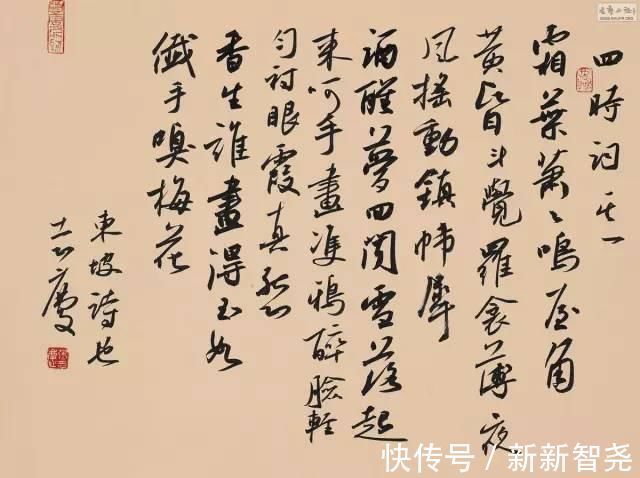 四時词其一
霜葉蕭々鳴屋角
黄昏斗覺羅衾薄夜
风摇動鎮帏犀
酒醒夢回闻雪落起
来呵手畫雙鴉醉臉輕
匀衬眼霞真態
香生誰畫得玉如
纖手嗅梅花
東坡詩也
快传号 / 新新智尧